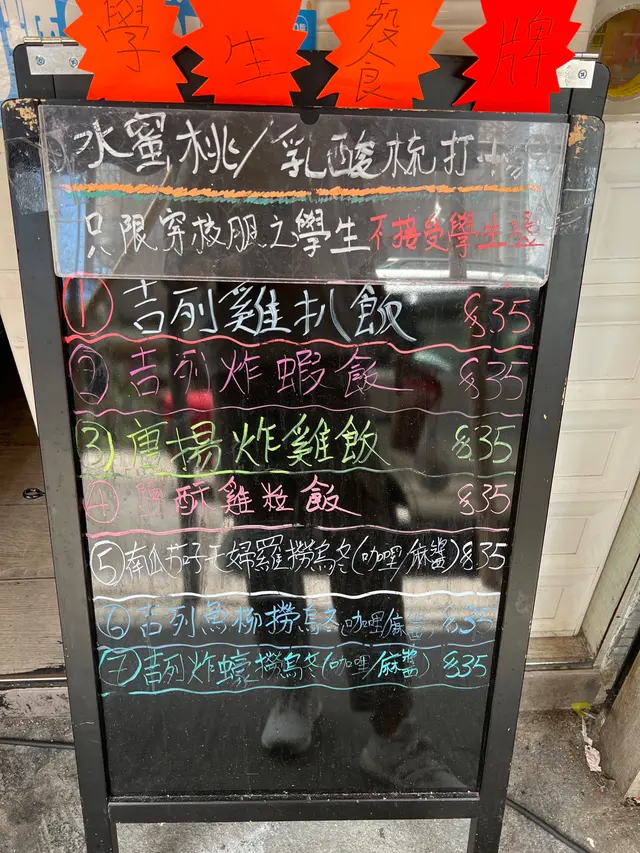 學生飱食牌
水蜜桃/乳酸梳打
只限穿校服之學生不接受學生證
① 吉列雞扒飯 $35
② 吉列炸蝦飯 $35
3) 唐揚炸雞飯 $35
④ 酥雞粒飯 $35
⑤ 南瓜茄子天婦羅撈烏冬(咖哩/麻醬) $35
⑥ 吉列魚柳撈烏冬(咖哩/麻醬 $35
⑦ 吉列炸蠔撈烏冬(咖哩/麻醬) $35